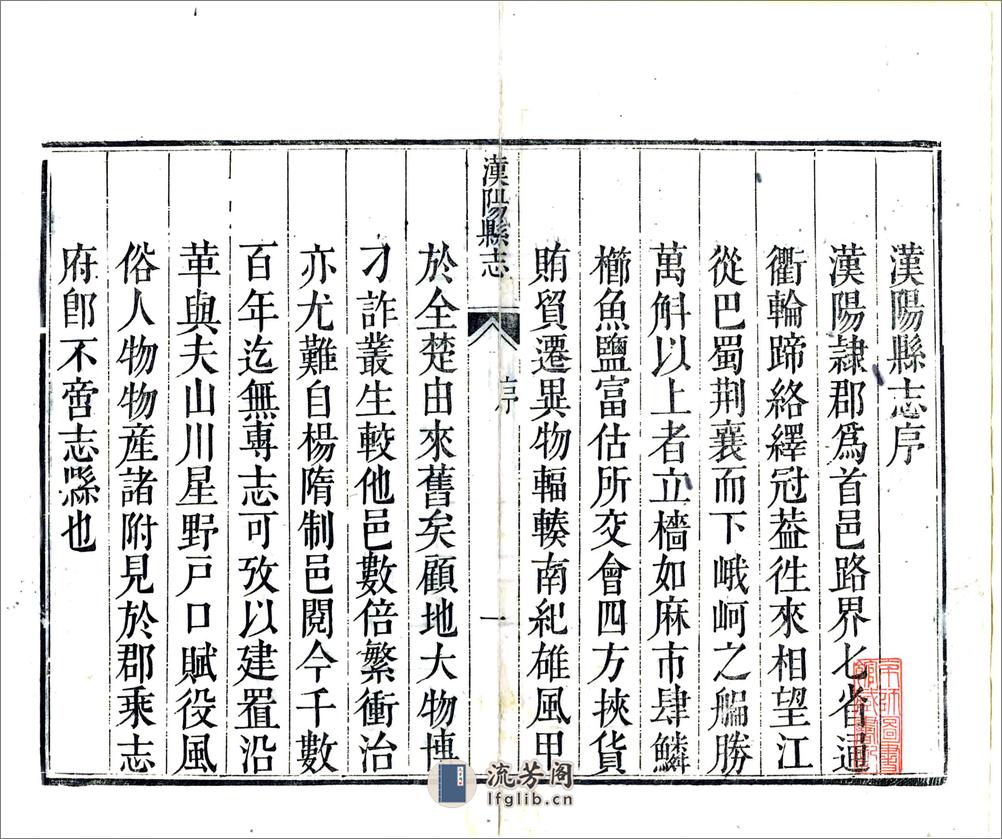 漢陽縣志序
漢陽隷郡爲首邑路界七省逼
衢輪蹄絡繹冠葢徃來相望江
從巴蜀荆襄而下峨岢之艑勝
萬斛以上者立檣如麻市肆鱗
櫛魚鹽富估所交會四方挾貨
賄貿遷異物輻輳南紀雄風甲
漢陽縣志
序
一
於全楚由來舊矣顧地大物博
刁詐叢生較他邑數倍繁衝治
亦尤難自楊隋制邑閱今千數
百年迄無專志可攷以建置沿
革與夫山川星野戸口賦役風
俗人物物産諸附見於郡乗志
府卽不啻志縣也
流芳阁
lfglib.cn